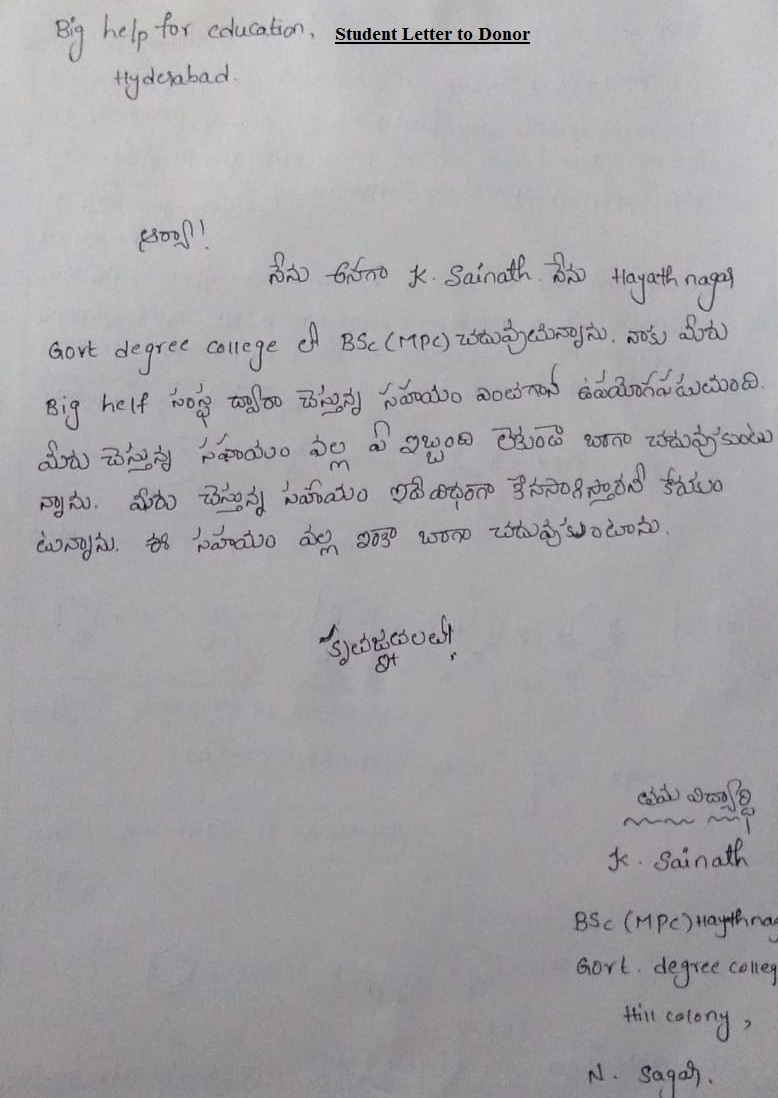 Big help for education, Student Letter to Donor
Hyderabad.
ఆర్యా!
నేను అనగా K. Sainath. నేను Hayath nagar
Govt degree college లో BSc (MPC) చదువుతున్నాను. నాకు మీరు
Big helf సంస్థ ద్వారా చేస్తున్న సహాయం ఎంతగానో ఉపయోగపడుతుంది.
మీరు చేస్తున్న సహాయం వల్ల ఏ ఇబ్బంది లేకుండా బాగా చదువుకుంటు
న్నాను. మీరు చేస్తున్న సహాయం ఇదే విధంగా కొనసాగిస్తారని కోరుకుం
టున్నాను. ఈ సహాయం వల్ల ఇంకా బాగా చదువుకుంటాను.
కృతజ్ఞతలతో,
తమ విద్యార్థి
K. Sainath
BSc (MPC) Haythnag
Govt. degree colleg
Hill colony,
N. Sagar.